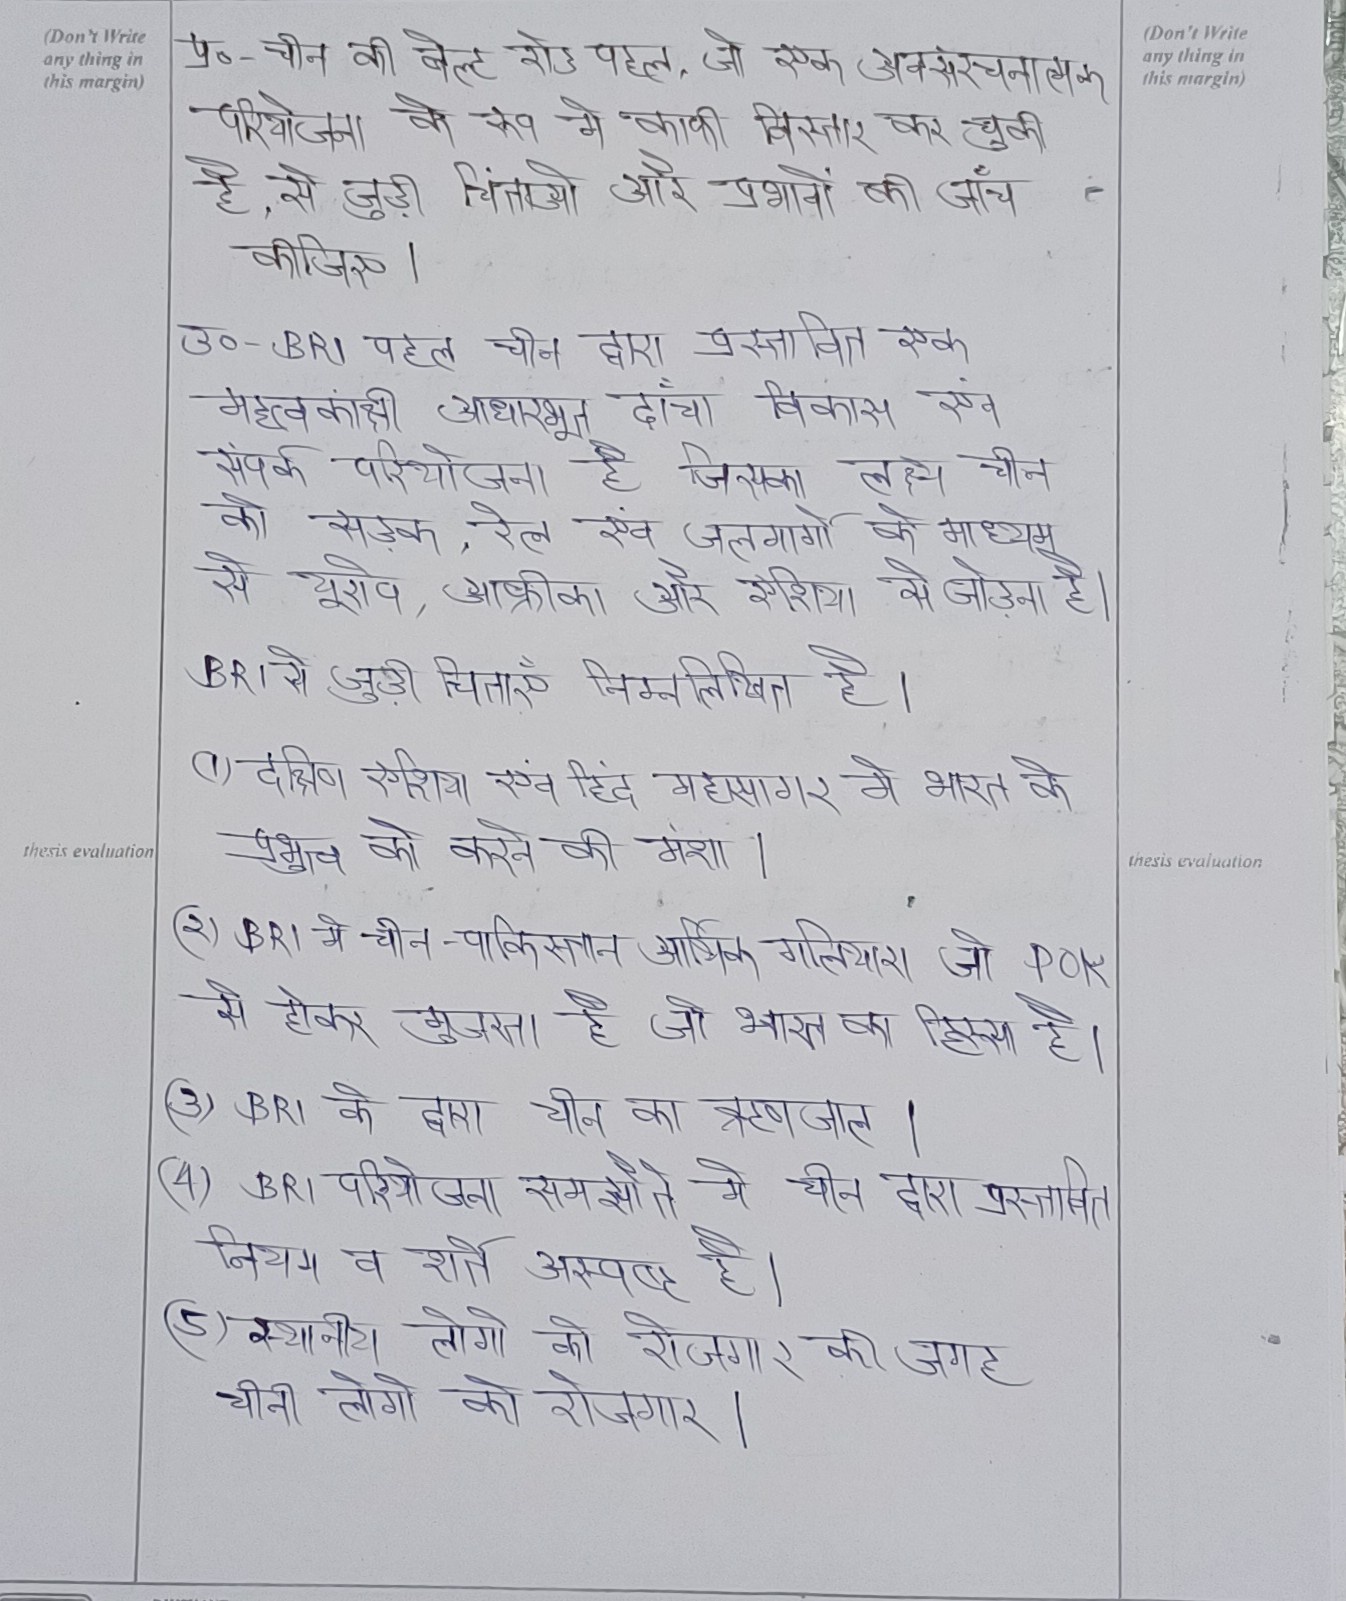 (Don't Write
any thing in
this margin)
(Don't Write
any thing in
this margin)
प्र०-चीन की बेल्ट रोड पहल, जो एक अवसंरचनात्मक
परियोजना के रूप में काफी विस्तार कर चुकी
है, से जुड़ी चिंताओं और प्रभावों की जाँच
कीजिए।
उ०-BRI पहल चीन द्वारा प्रस्तावित एक
महत्वकांक्षी आधारभूत ढाँचा विकास एंव
संपर्क परियोजना है जिसका लक्ष्य चीन
को सड़क, रेल एंव जलमार्गो के माध्यम
से यूरोप, आफ्रीका और एशिया से जोड़ना है।
BRI से जुड़ी चिताएँ निम्नलिखित है।
(1) दक्षिण एशिया एंव हिंद महासागर मे भारत के
प्रभुत्व को करने की मंशा।
thesis evaluation
thesis evaluation
(2) BRI मे चीन-पाकिस्तान आर्थिक गलियारा जो POK
से होकर गुजरता है जो भारत का हिस्सा है।
(3) BRI के द्वारा चीन का ऋणजाल।
(4) BRI परियोजना समझौते मे चीन द्वारा प्रस्तावित
नियम व शर्ते अस्पष्ट है।
(5) स्थानीय लोगो को रोजगार की जगह
चीनी लोगो को रोजगार।